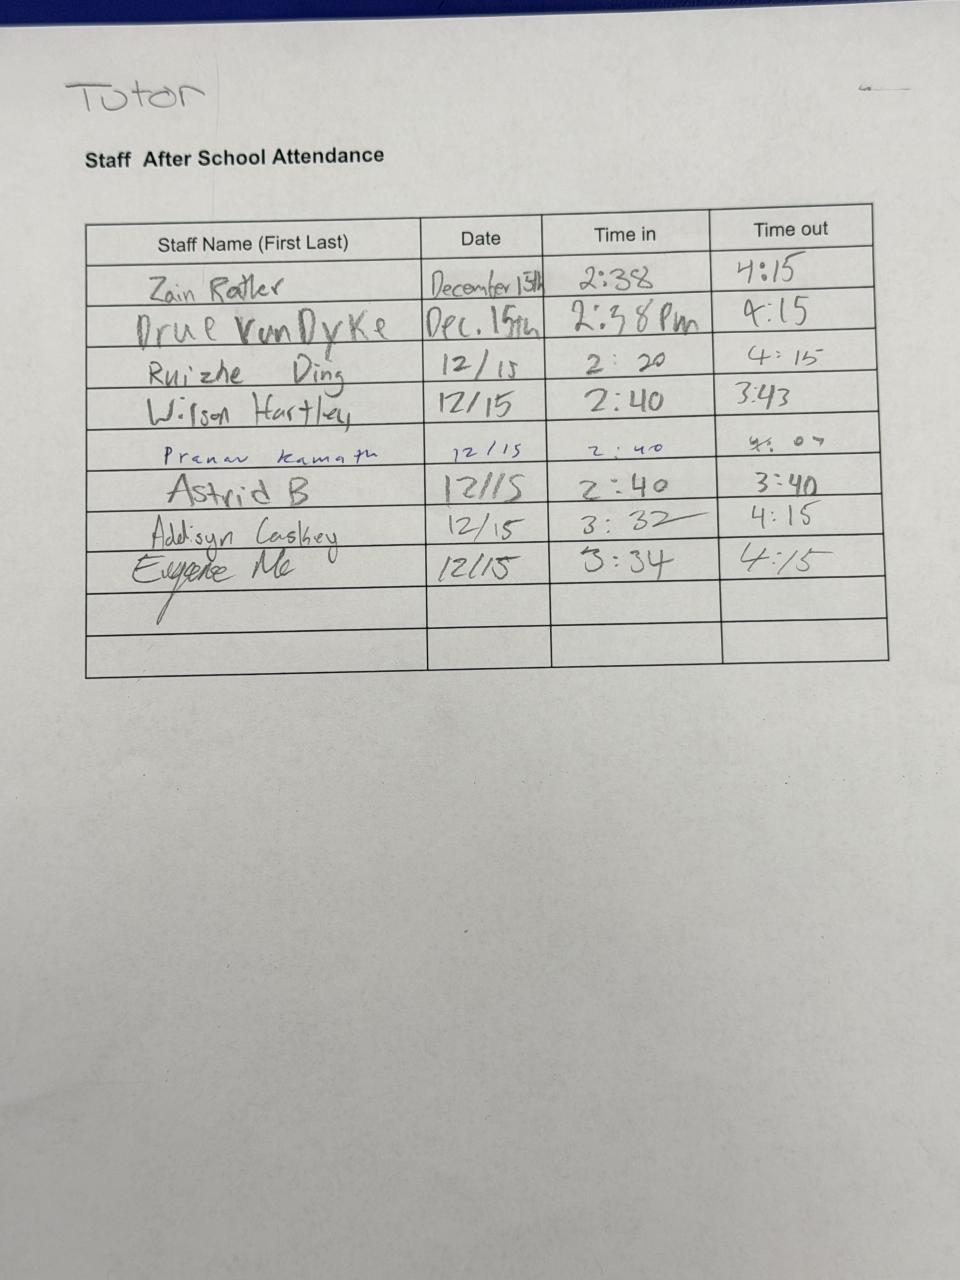 Tutor
Staff After School Attendance
Staff Name (First Last) Date Time in Time out
Zain December 15th 2:38 4:15
Drue VanDyke Dec. 15th 2:38 Pm 4:15
Ruizhe Ding 12/15 2:20 4:15
Wilson Hartley 12/15 2:40 3:43
Pranav Kamath 12/15 2:40 4:07
Astrid B 12/15 2:40 3:40
Addisyn Caskey 12/15 3:32 4:15
Eugene 12/15 3:34 4:15